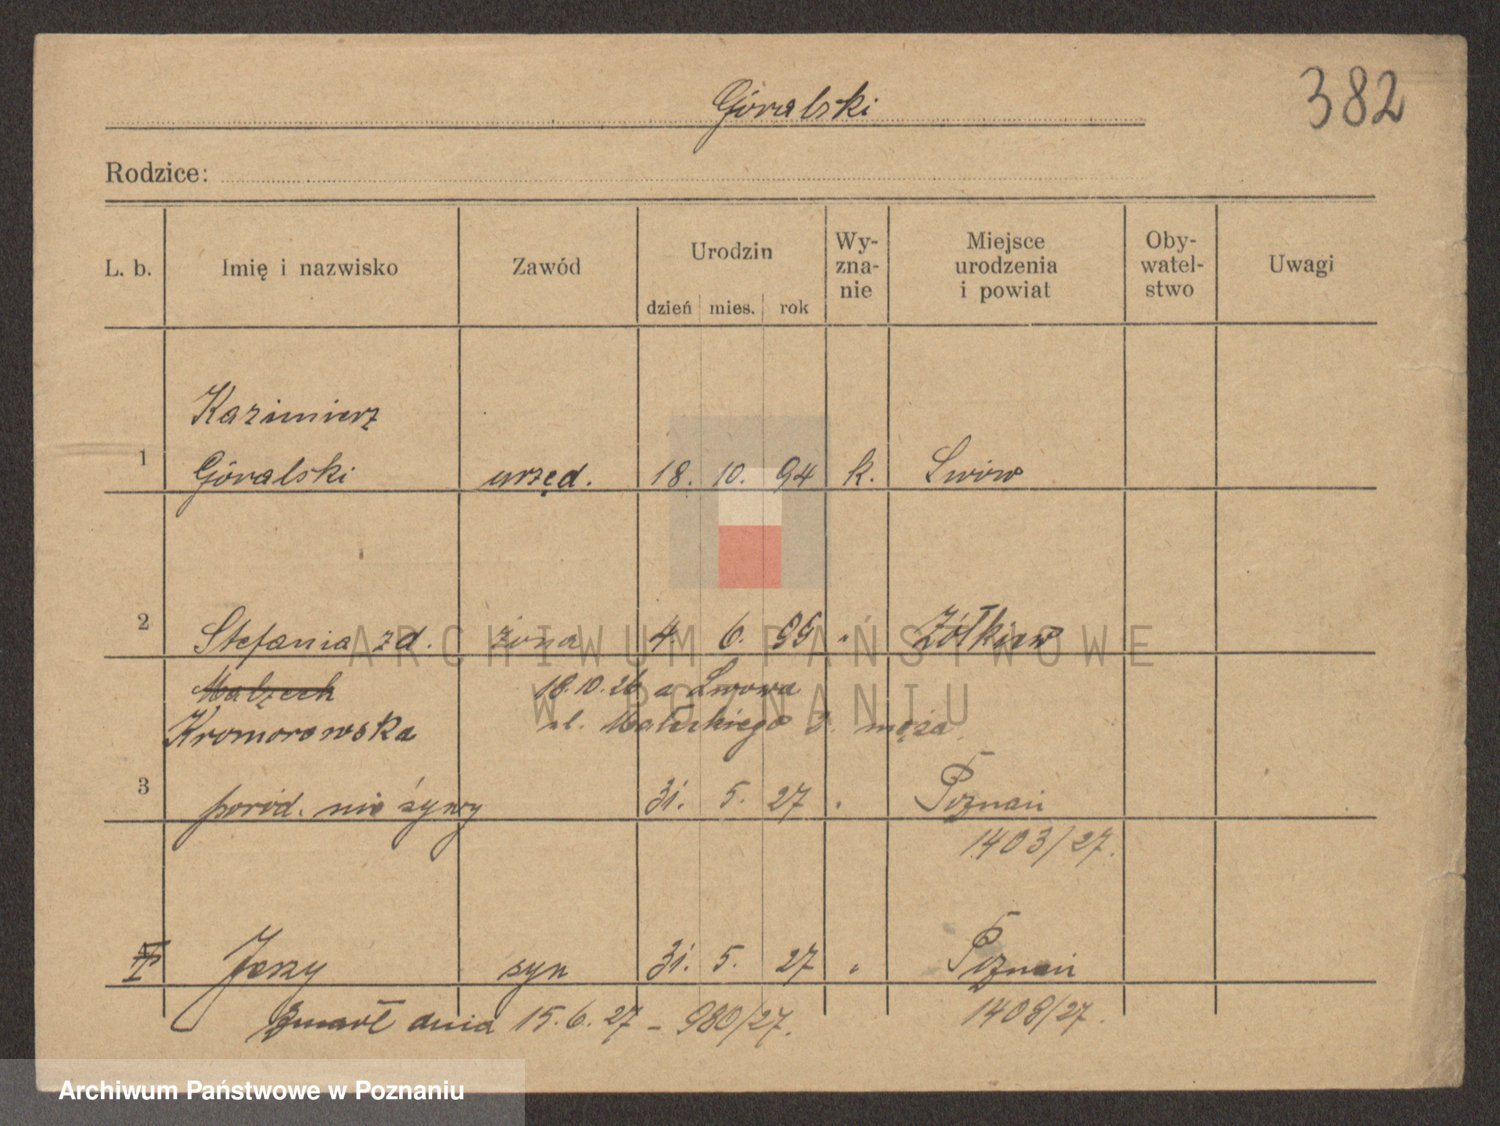 Góralski
382
Rodzice:
L. b. Imię i nazwisko Zawód Urodzin dzień mies. rok Wy-zna-nie Miejsce urodzenia i powiat Oby-watel-stwo Uwagi
Kazimierz
1 Góralski urzęd. 18. 10. 94 k. Lwów
2 Stefania z d. żona 4. 6. 95 " Żółkiew
Kromorowska
18.10.26 z Lwowa
ul. Małeckiego 2. męża
3 poród. nieżywy 31. 5. 27 " Poznań
1403/27.
Jerzy syn 31. 5. 27 " Poznań
1408/27.
Zmarł dnia 15.6.27 – 980/27.
ARCHIWUM PAŃSTWOWE
W POZNANIU
Archiwum Państwowe w Poznaniu